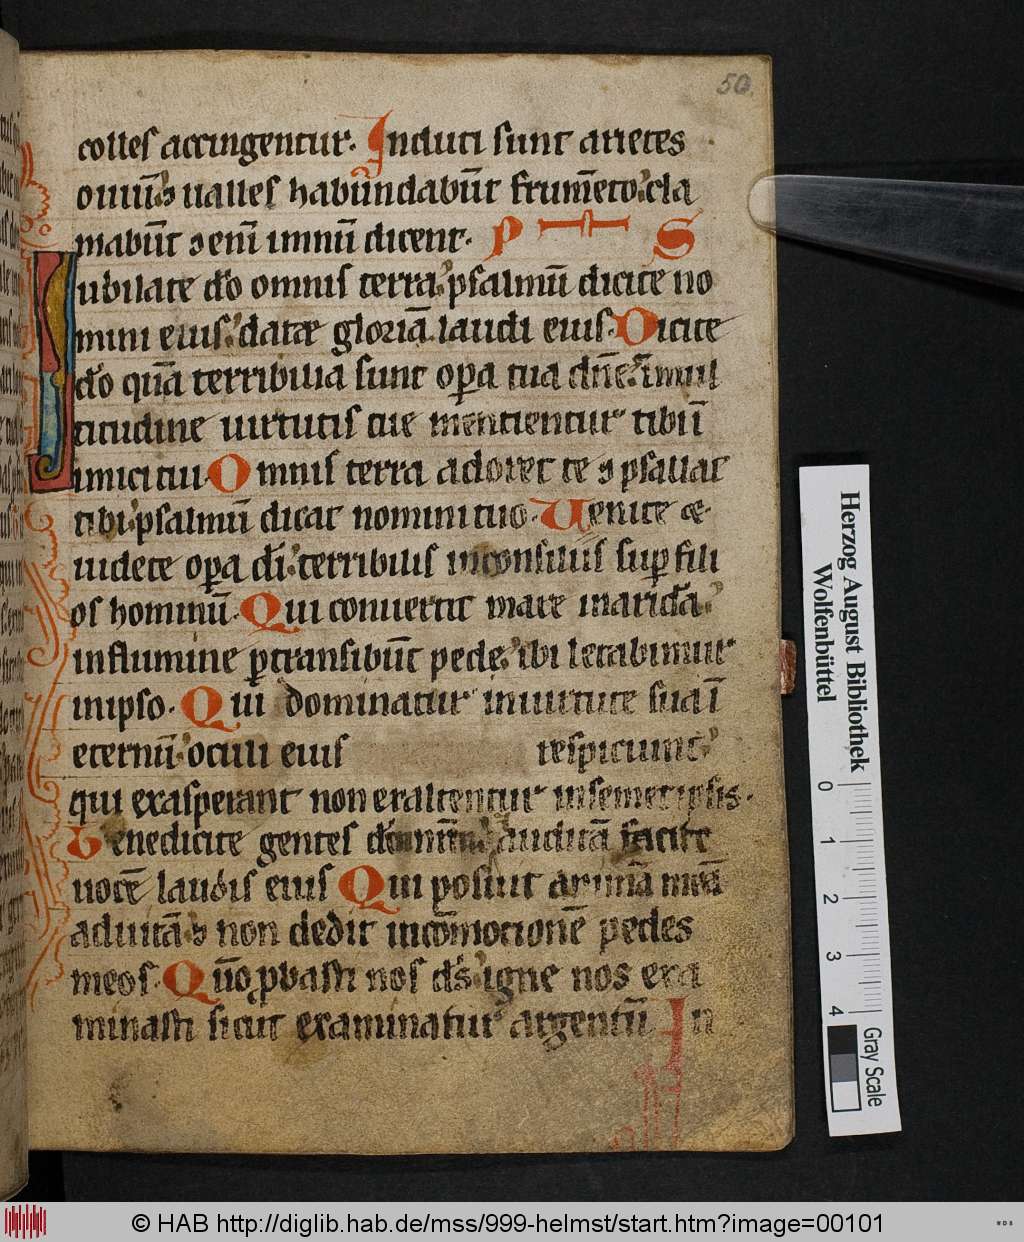 50
colles accingentur. Induti sunt arietes
ouiū ⁊ ualles habūndabūt frum̄eto: cla
mabūt ⁊ enī imnū dicent. P S
Iubilate dō omnis terra psalmū dicite no
mini eius: datæ gloriā laudi eius. Dicite
dō quā terribilia sunt oꝑa tua dn̄e: ī mul
titudine uirtutis tue mentientur tibi ī
imici tui. Omnis terra adoret te ⁊ psallat
tibi: psalmū dicat nomini tuo. Uenite ⁊
uidete oꝑa dī: terribilis inconsiliis suꝑ fili
os hominū. Qui conuertit mare inaridā:
influmine ꝑtransibūt pede: ibi letabimur
inipso. Qui dominatur inuirtute sua ī
eternū: oculi eius respiciunt:
qui exasperant non exaltentur insemetipsis.
Benedicite gentes auditā facite
uocē laudis eius Qui posuit animā meā
aduitā ⁊ non dedit incōmotionē pedes
meos. Qūo ꝓbasti nos ds̄: igne nos exa
minasti sicut examinatur argentū In
Herzog August Bibliothek
Wolfenbüttel
0 1 2 3 4
Gray Scale
© HAB http://diglib.hab.de/mss/999-helmst/start.htm?image=00101